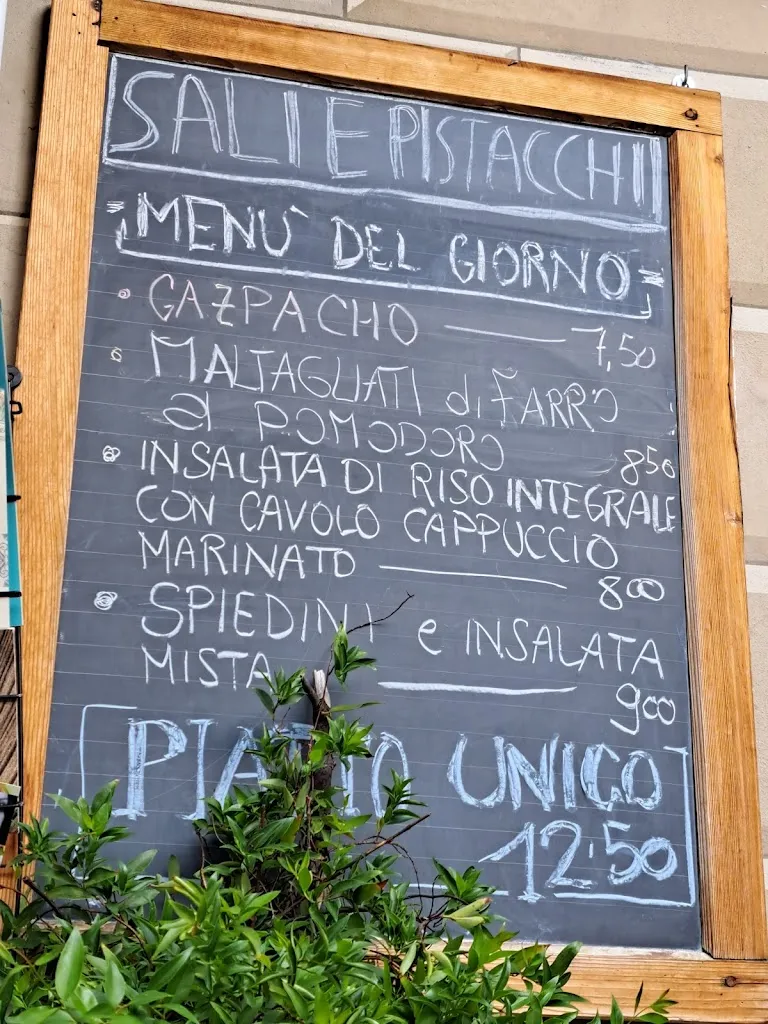 SALI E PISTACCHI
MENU` DEL GIORNO
GAZPACHO 7,50
MALTAGLIATI di FARRO
al POMODORO 850
INSALATA DI RISO INTEGRALE
CON CAVOLO CAPPUCCIO
MARINATO 800
SPIEDINI e INSALATA
MISTA 900
PIATTO UNICO
12.50